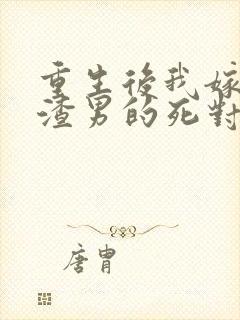 重生後我嫁
渣男的死對
唐胄